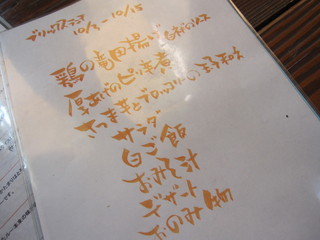 ブリックスランチ
10/9〜10/15
鶏の竜田揚げ
厚あげのピリ辛煮
さつま芋とブロッコリーの
サラダ
白ご飯
おみそ汁
デザート
おのみ物